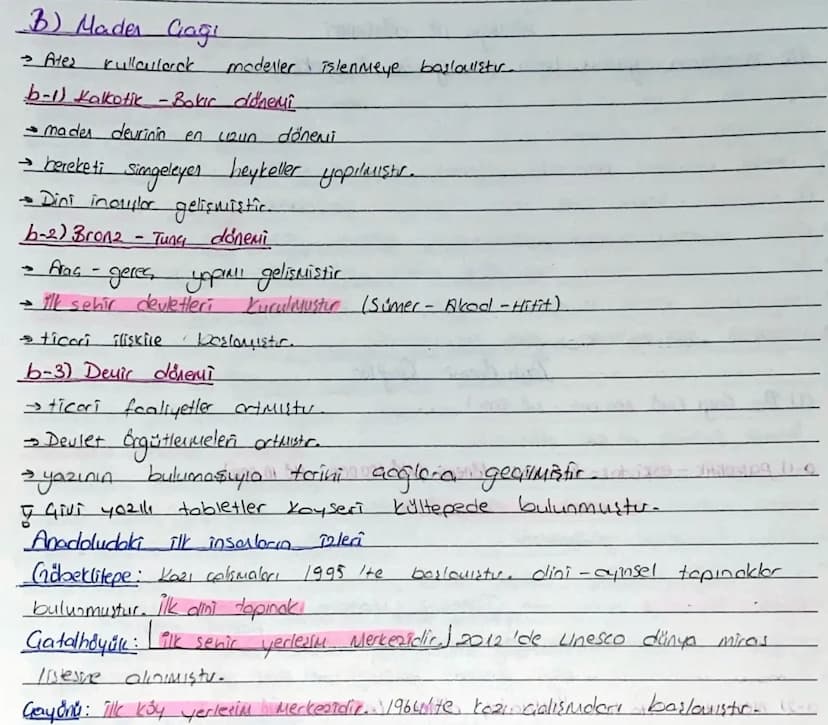 B) Maden Çağı
→ Ateş kullanılarak madenler işlenmeye başlanmıştır.
b-1) Kalkotik - Bakır dönemi
→ maden devrinin en uzun dönemi
→ bereketi simgeleyen heykeller yapılmıştır.
→ Dini inanışlar gelişmiştir.
b-2) Bronz - Tunç dönemi
→ Araç - gereç yapımı gelişmiştir
→ ilk şehir devletleri kurulmuştur (Sümer - Akad - Hitit)
→ ticari ilişkile başlamıştır.
b-3) Demir dönemi
→ ticari faaliyetler artmıştır.
→ Devlet Örgütlenmeleri artmıştır.
→ yazının bulunmasıyla tarihi çağlara geçilmiştir.
Çivi yazılı tabletler Kayseri Kültepede bulunmuştur.
Anadoludaki ilk insanların izleri
Göbeklitepe: Kazı çalışmaları 1995'te başlamıştır. dini - ayinsel tapınaklar
bulunmuştur. İlk dini tapınak
Çatalhöyük: [ilk şehir yerleşim merkezidir.] 2012'de Unesco dünya miras
listesine alınmıştır.
Çayönü: ilk köy yerleşim merkezidir. 1964'te kazı çalışmaları başlamıştır.